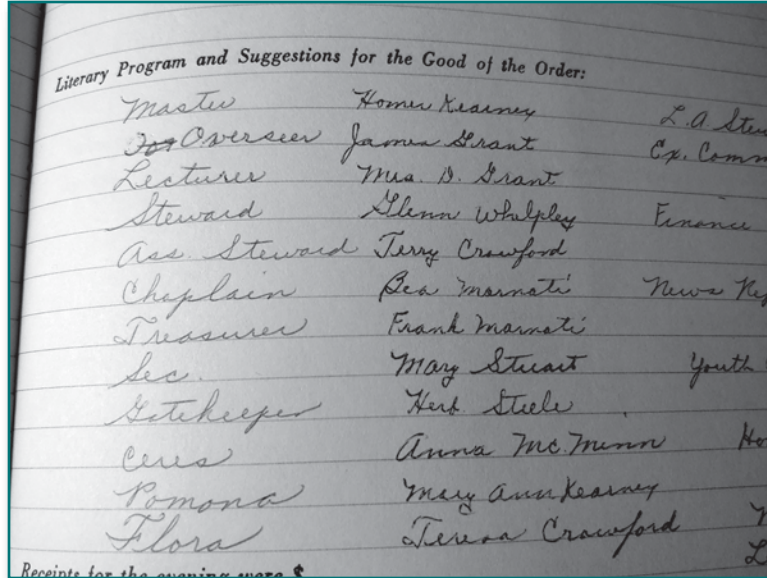 Literary Program and Suggestions for the Good of the Order:
Master Homer Kearney L.A.
Overseer James Grant Ex. Comm
Lecturer Mrs. D. Grant
Steward Glenn Whelpley Finance
Ass. Steward Terry Crawford
Chaplain Bea Marnati News
Treasurer Frank Marnati
Sec. Mary Stuart Youth
Gatekeeper Herb Steele
Ceres Anna Mc.Minn
Pomona Mary Ann Kearney
Flora Teresa Crawford
Receipts for the evening were $